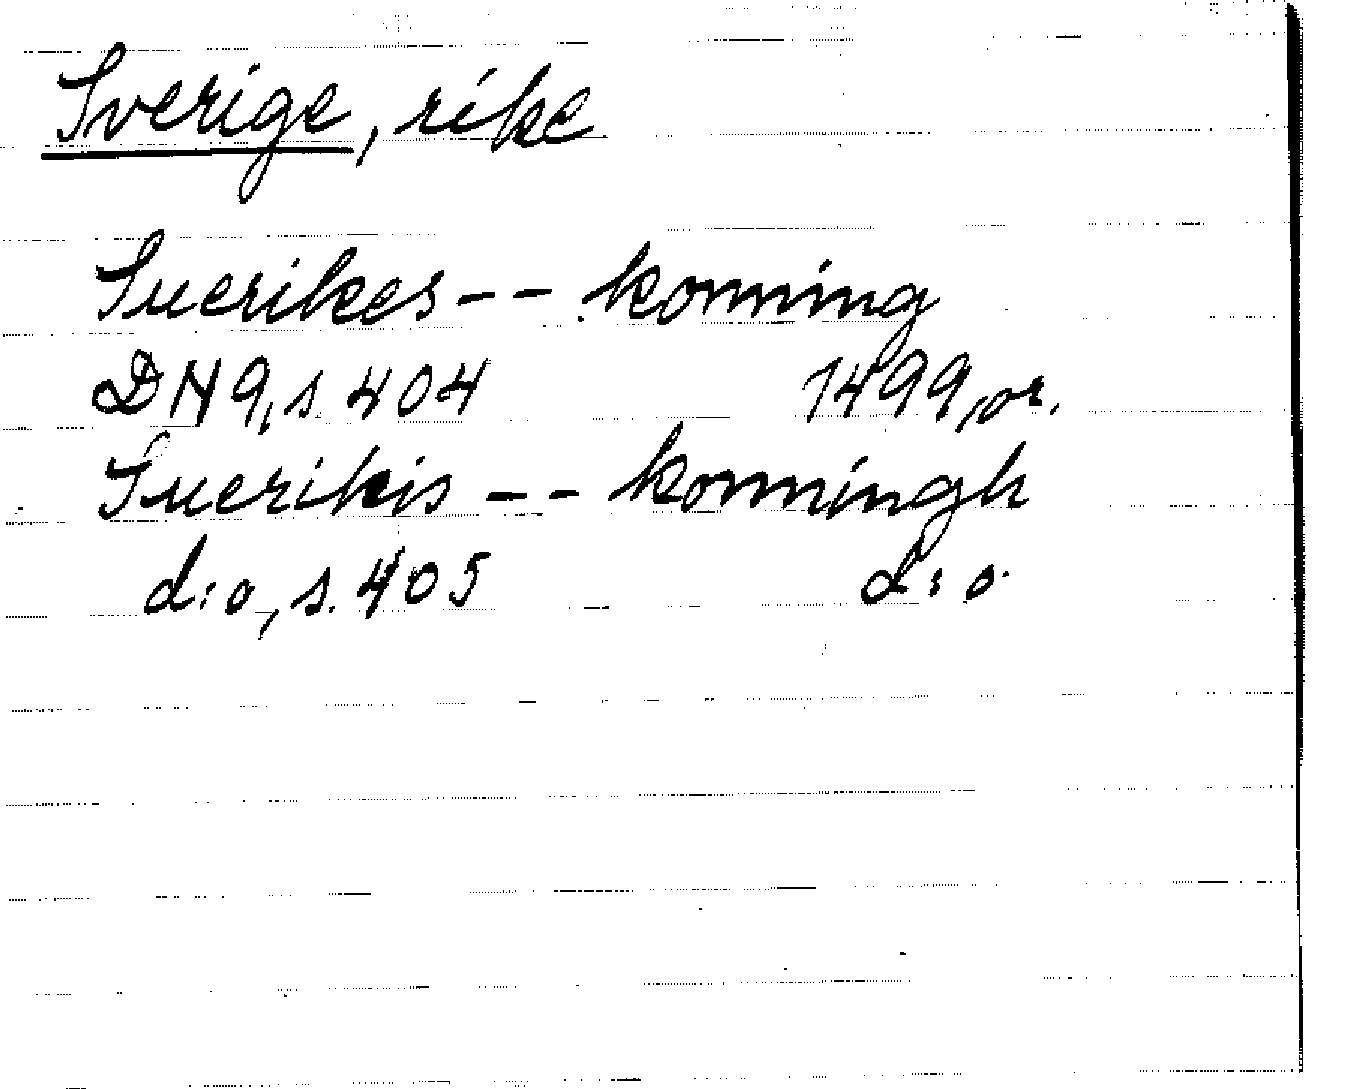 Sverige, rike
Suerikes -- konning
DN 9, s. 404 1499, or.
Suerikis -- konningh
d:o, s. 405 d:o